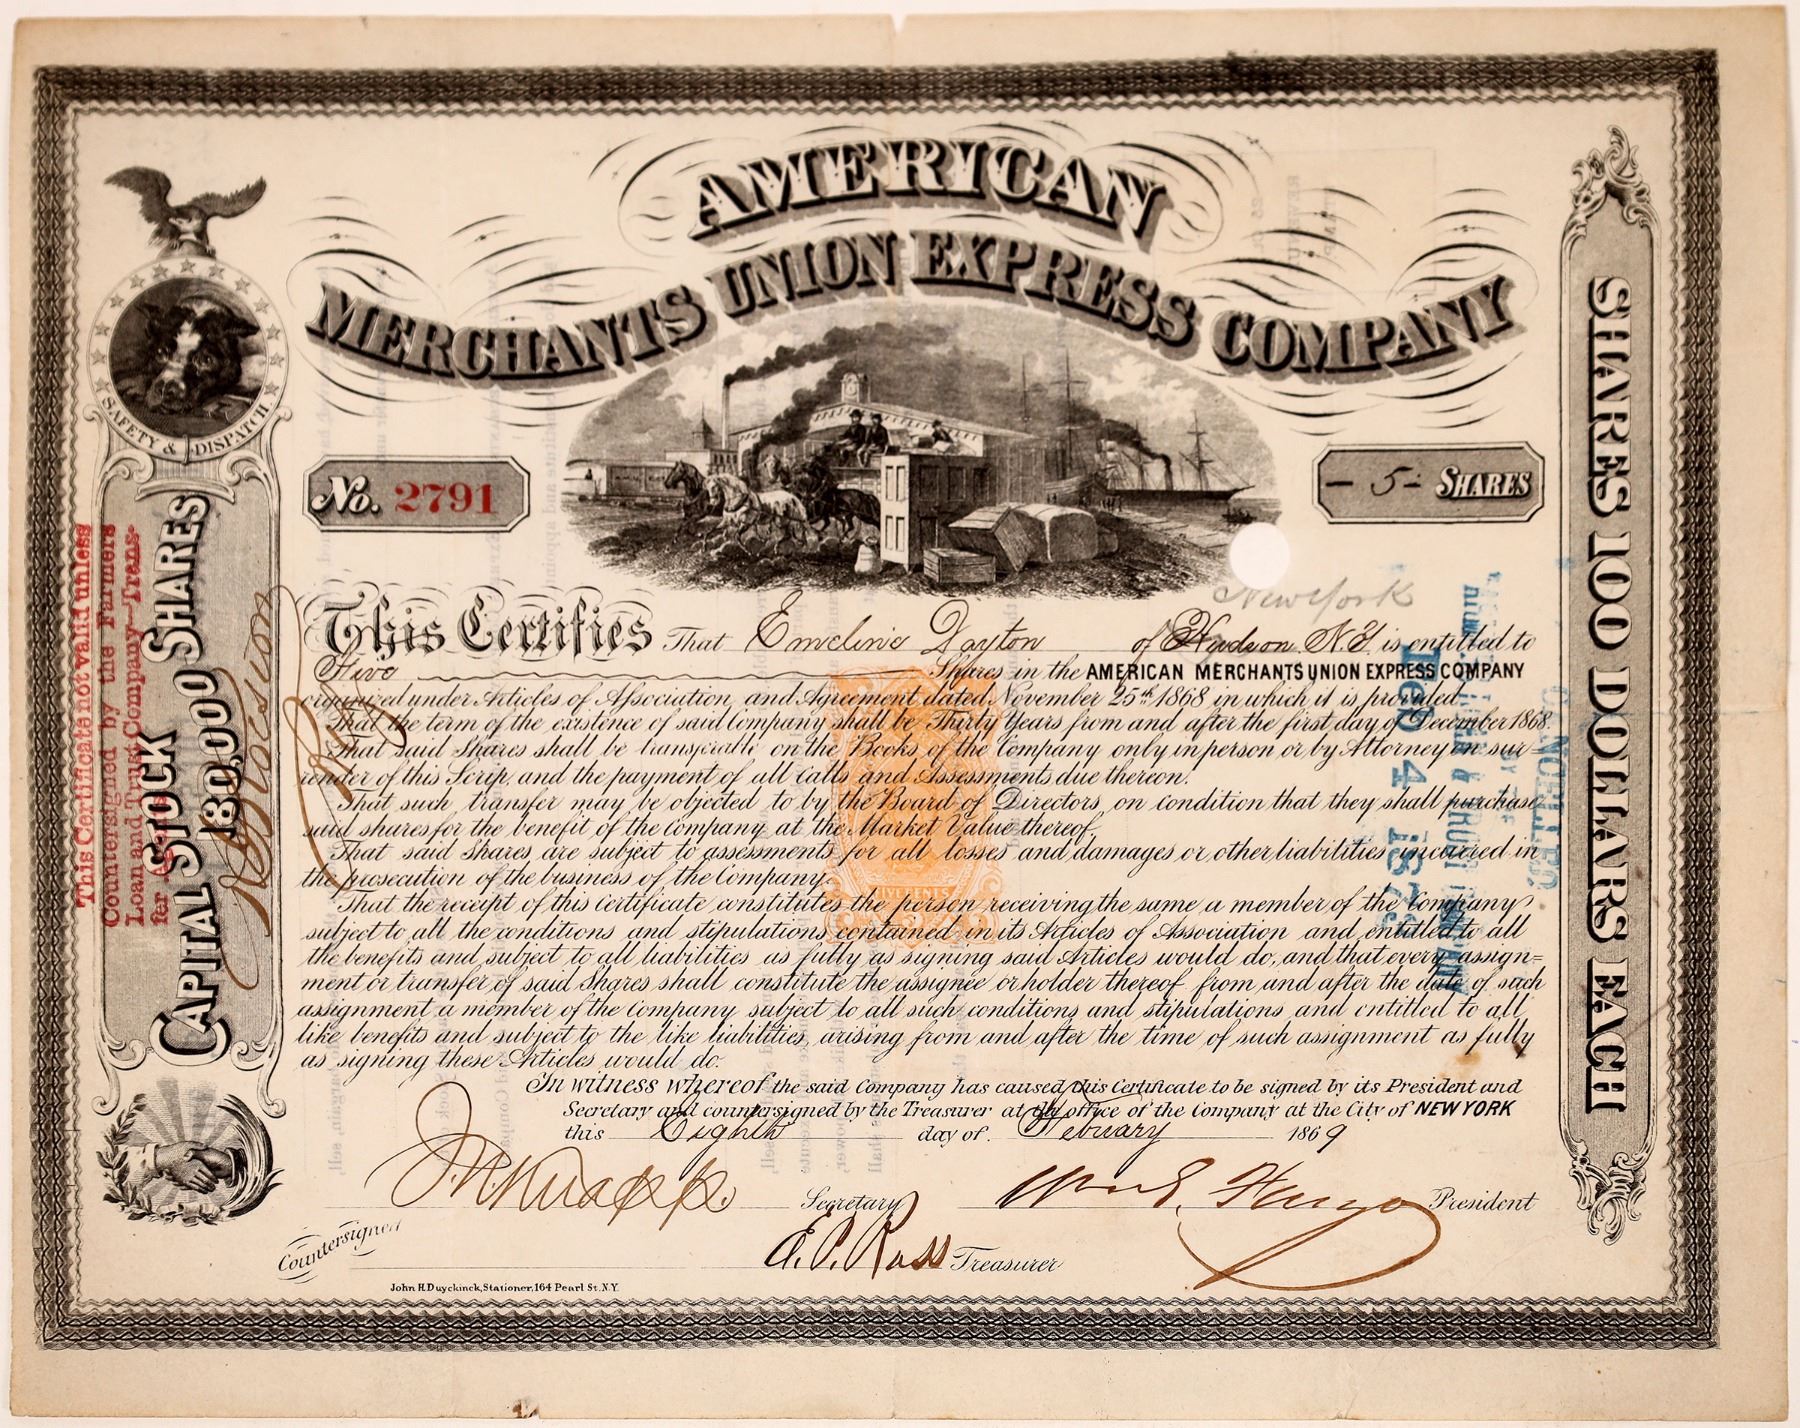 AMERICAN
MERCHANTS UNION EXPRESS COMPANY
SAFETY & DISPATCH
No. 2791
- 5 - SHARES
New York
This Certifies That Emeline Dayton of Hudson N.Y. is entitled to
Five Shares in the AMERICAN MERCHANTS UNION EXPRESS COMPANY
organized under Articles of Association, and Agreement dated November 25th 1868 in which it is provided
That the term of the existence of said Company shall be Thirty Years from and after the first day of December 1868.
That said Shares shall be transferable on the Books of the Company only in person or by Attorney on sur=
render of this Scrip, and the payment of all Calls and Assessments due thereon.
That such transfer may be objected to by the Board of Directors, on condition that they shall purchase
said shares for the benefit of the Company at the Market Value thereof.
That said Shares are subject to assessments for all losses and damages or other liabilities incurred in
the prosecution of the business of the Company.
That the receipt of this Certificate constitutes the person receiving the same a member of the Company
subject to all the conditions and stipulations contained in its Articles of Association and entitled to all
the benefits and subject to all liabilities as fully as signing said Articles would do, and that every assign=
ment or transfer of said Shares shall constitute the assignee or holder thereof from and after the date of such
assignment a member of the Company subject to all such conditions and stipulations and entitled to all
like benefits and subject to the like liabilities, arising from and after the time of such assignment as fully
as signing these Articles would do.
In witness whereof the said Company has caused this Certificate to be signed by its President and
Secretary and countersigned by the Treasurer at the office of the Company at the City of NEW YORK
this Eighth day of February 1869
J.N. Knapp Secretary Wm G. Fargo President
Countersigned
A.P. Ross Treasurer
John H. Duyckinck, Stationer, 164 Pearl St. N.Y.
This Certificate not valid unless
Countersigned by the Farmers
Loan and Trust Company—Trans-
fer Agents
CAPITAL STOCK
180,000 SHARES
SHARES 100 DOLLARS EACH
CANCELLED
DEC 4 1873